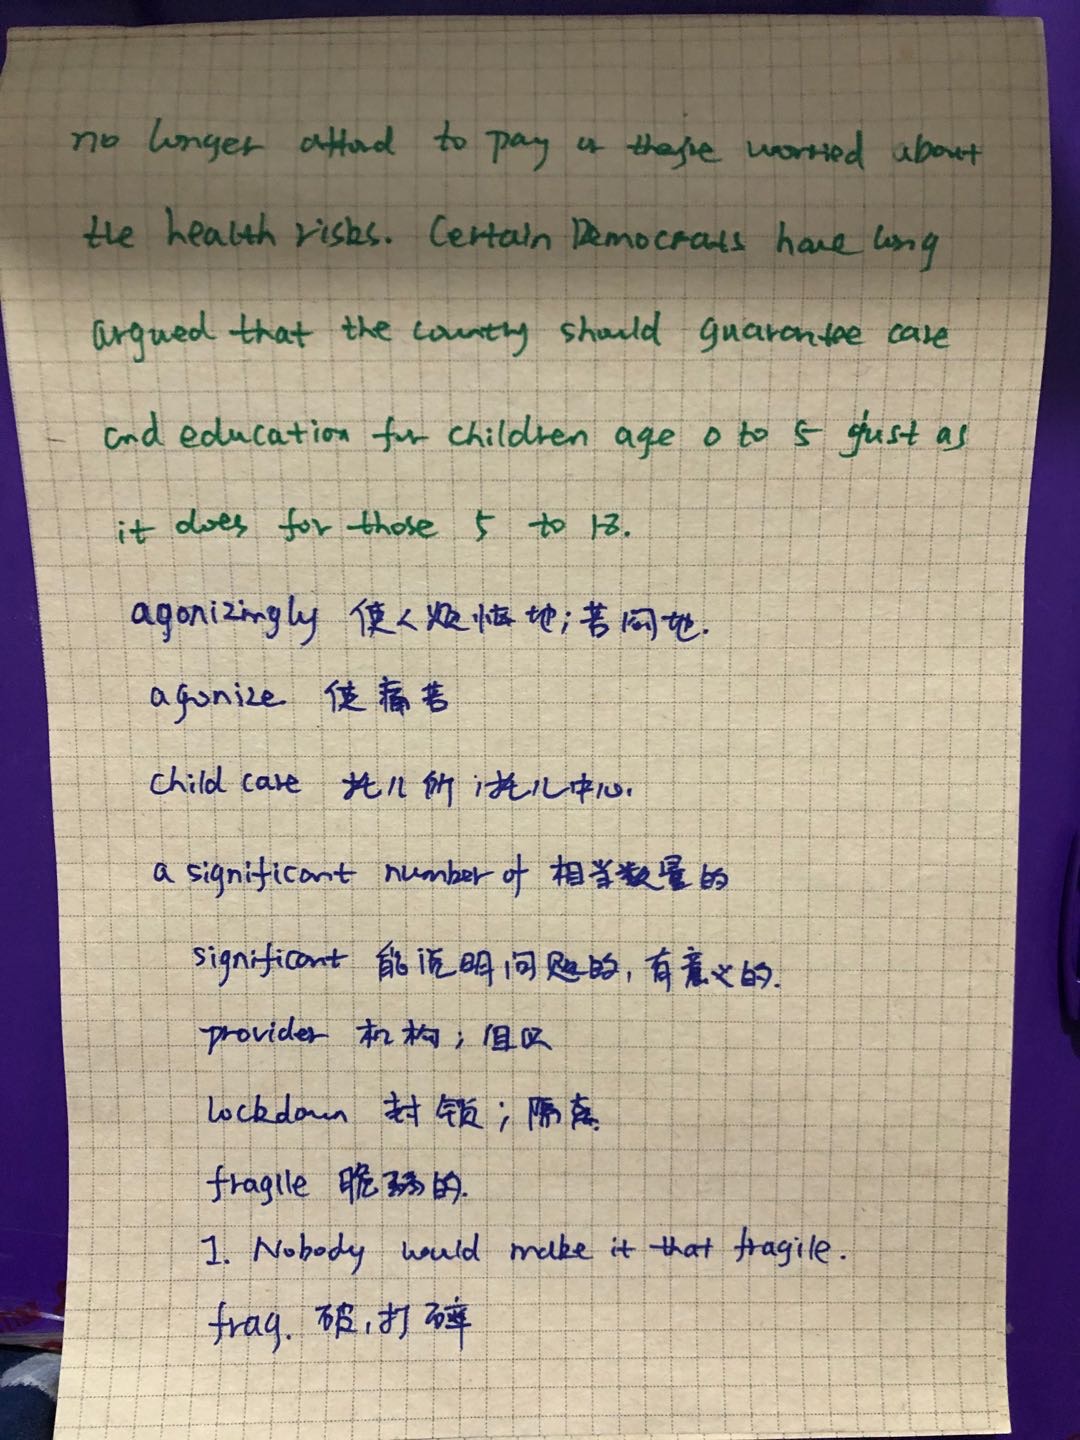 no longer afford to pay or they're worried about
the health risks. Certain Democrats have long
argued that the country should guarantee care
and education for children age 0 to 5 just as
it does for those 5 to 18.
agonizingly 使人烦恼地;苦闷地.
agonize 使痛苦
child care 托儿所;托儿中心.
a significant number of 相当数量的
significant 能说明问题的,有意义的.
provider 机构;
lockdown 封锁;隔离
fragile 脆弱的.
1. Nobody would make it that fragile.
frag. 破,打碎